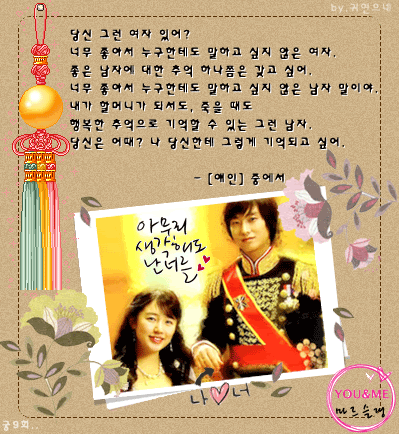 by.귀연으네
당신 그런 여자 있어?
너무 좋아서 누구한테도 말하고 싶지 않은 여자.
좋은 남자에 대한 추억 하나쯤은 갖고 싶어.
너무 좋아서 누구한테도 말하고 싶지 않은 남자 말이야.
내가 할머니가 되서도, 죽을 때도
행복한 추억으로 기억할 수 있는 그런 남자.
당신은 어때? 나 당신한테 그렇게 기억되고 싶어.
- [애인] 중에서
아무리
생각해도
난 너를
나 너
YOU&ME
궁9회..